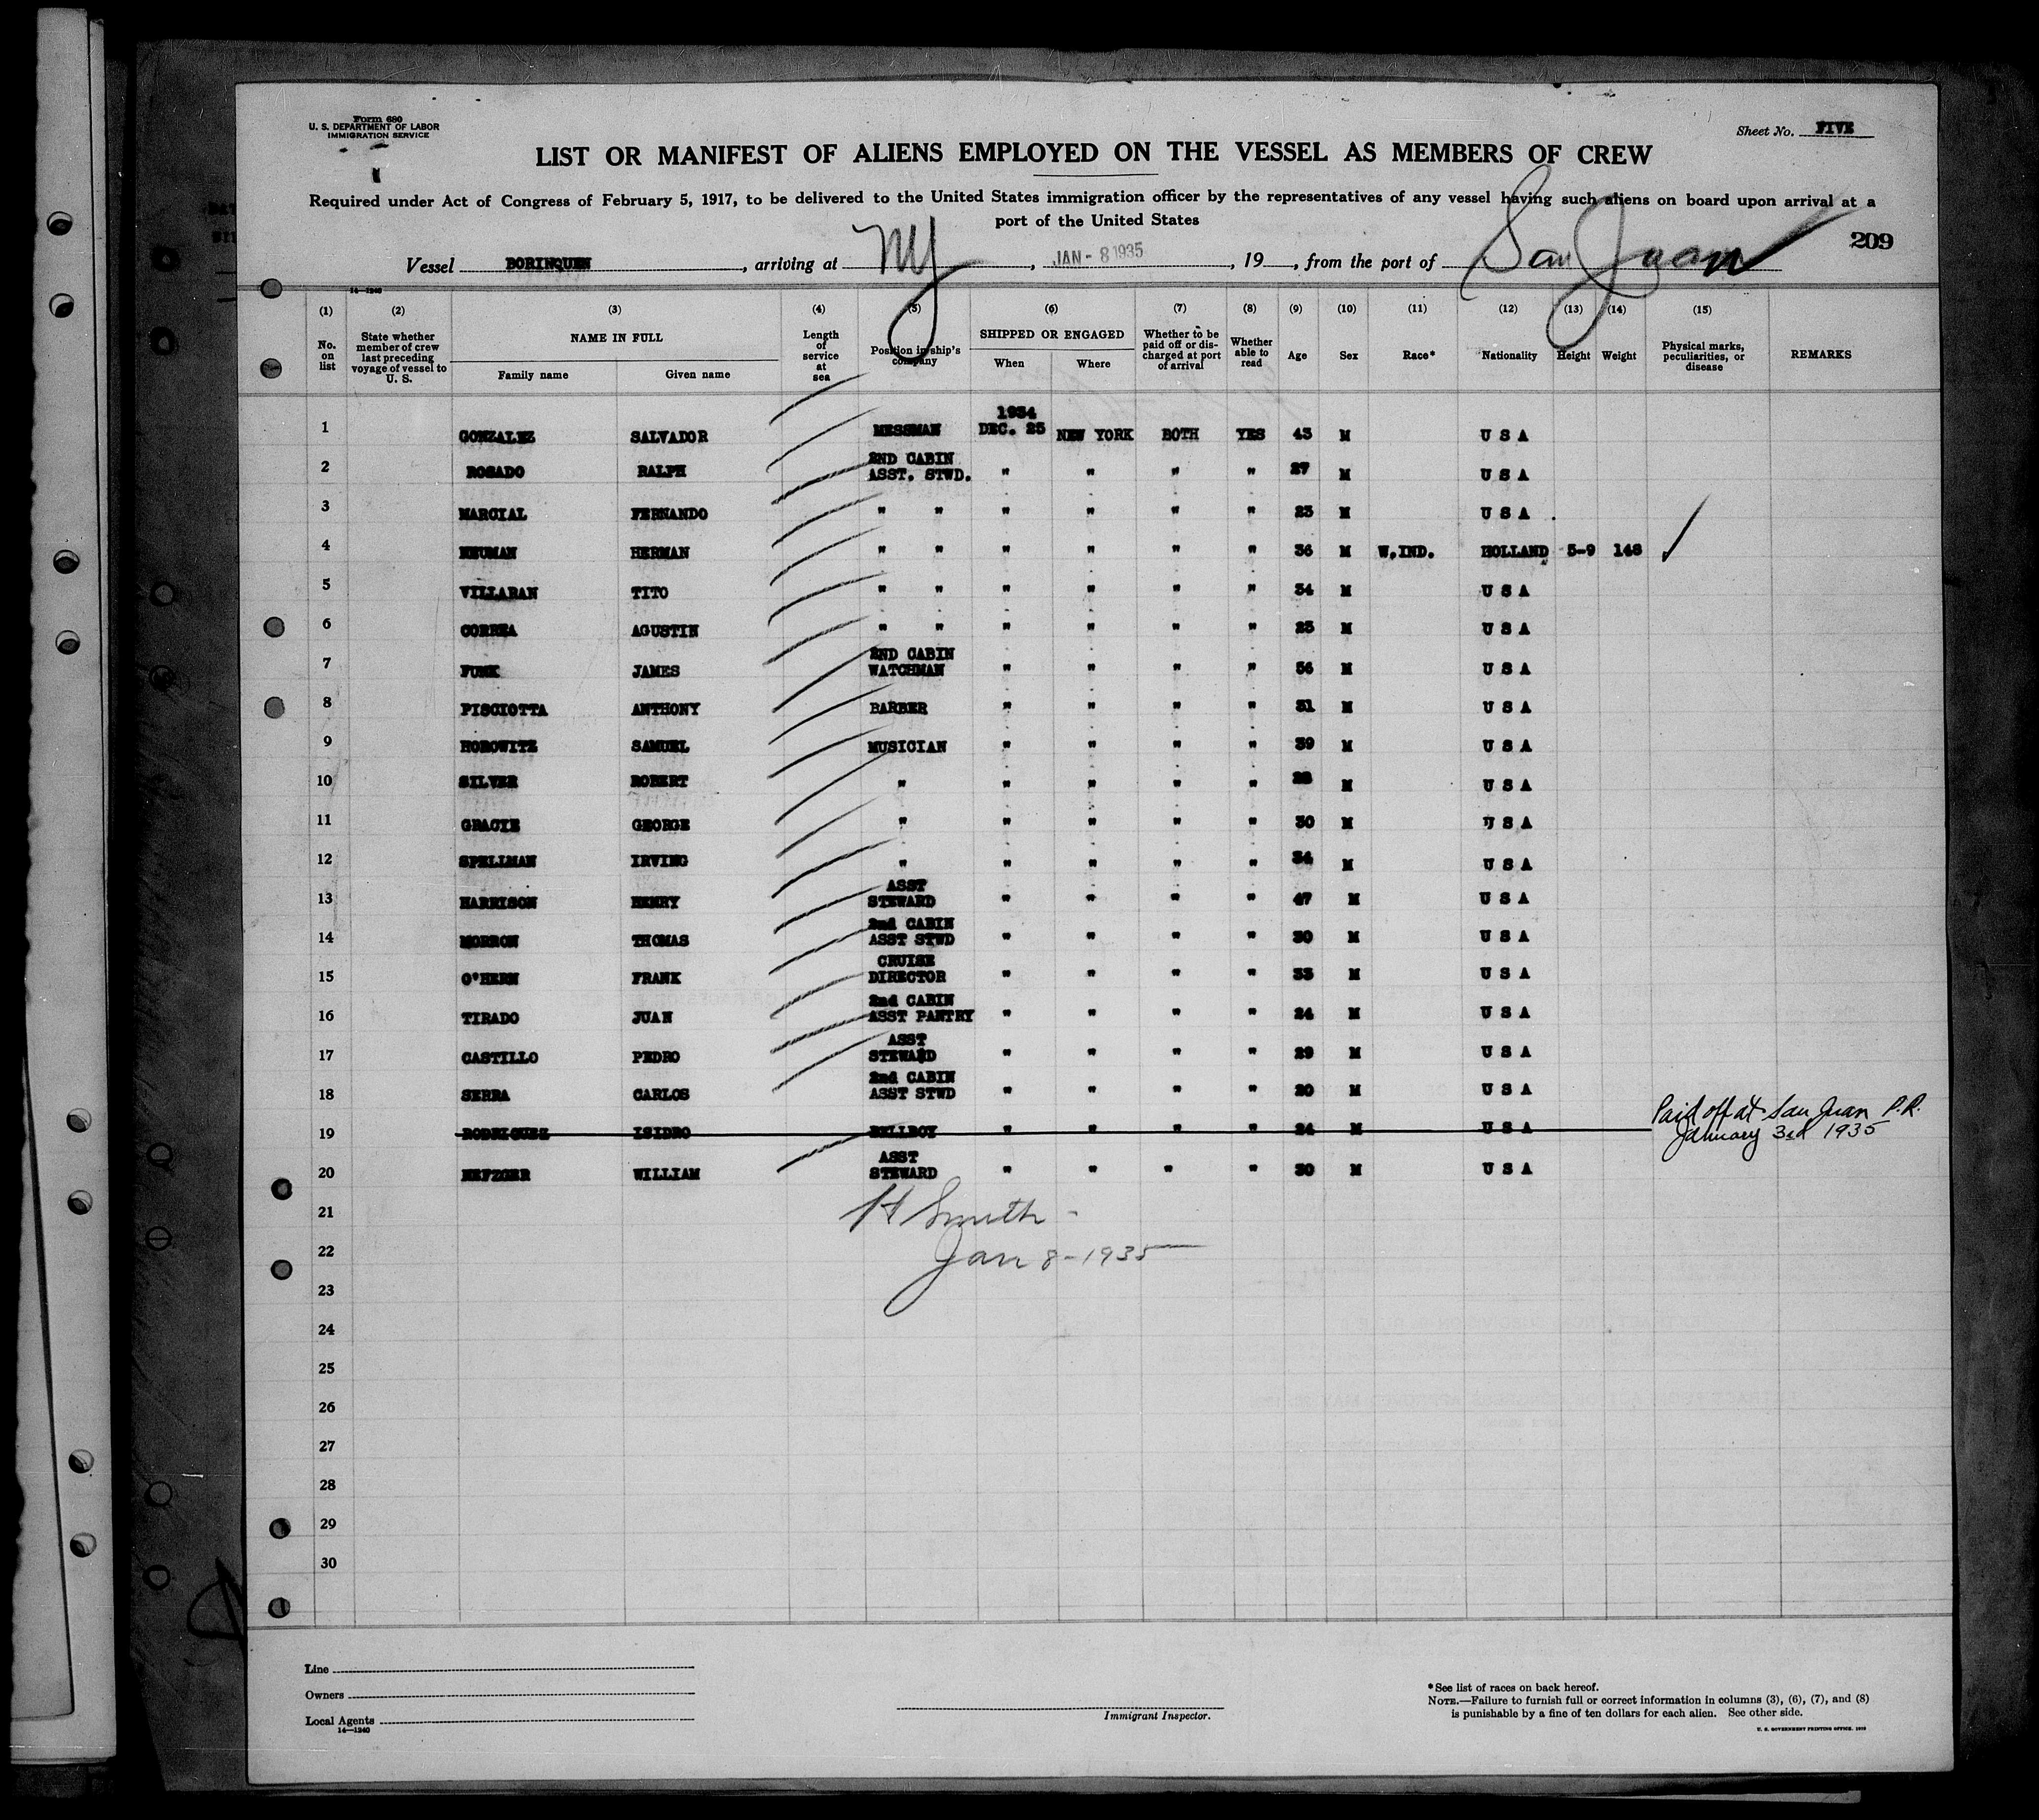 Form 680
U. S. DEPARTMENT OF LABOR
IMMIGRATION SERVICE
Sheet No. FIVE
LIST OR MANIFEST OF ALIENS EMPLOYED ON THE VESSEL AS MEMBERS OF CREW
Required under Act of Congress of February 5, 1917, to be delivered to the United States immigration officer by the representatives of any vessel having such aliens on board upon arrival at a
port of the United States
209
Vessel BORINQUEN, arriving at NY, JAN - 8 1935, 19, from the port of San Juan
14—1240
(1) (2) (3) (4) (5) (6) (7) (8) (9) (10) (11) (12) (13) (14) (15)
No. on list State whether member of crew last preceding voyage of vessel to U. S. NAME IN FULL Family name Given name Length of service at sea Position in ship's company SHIPPED OR ENGAGED When Where Whether to be paid off or discharged at port of arrival Whether able to read Age Sex Race* Nationality Height Weight Physical marks, peculiarities, or disease REMARKS
1934
1 GONZALEZ SALVADOR MESSMAN DEC. 25 NEW YORK BOTH YES 43 M U S A
2 ROSADO RALPH 2ND CABIN ASST. STWD. " " " " 27 M U S A
3 MARCIAL FERNANDO " " " " " " 23 M U S A
4 NEUMAN HERMAN " " " " " " 36 M W.IND. HOLLAND 5-9 148
5 VILLARAN TITO " " " " " " 34 M U S A
6 CORREA AGUSTIN " " " " " " 23 M U S A
7 FUNK JAMES 2ND CABIN WATCHMAN " " " " 56 M U S A
8 PISCIOTTA ANTHONY BARBER " " " " 31 M U S A
9 HOROWITZ SAMUEL MUSICIAN " " " " 39 M U S A
10 SILVER ROBERT " " " " " 28 M U S A
11 GRACIE GEORGE " " " " " 30 M U S A
12 SPELLMAN IRVING " " " " " 34 M U S A
13 HARRISON HENRY ASST STEWARD " " " " 47 M U S A
14 MORRON THOMAS 2nd CABIN ASST STWD " " " " 30 M U S A
15 O'HERN FRANK CRUISE DIRECTOR " " " " 33 M U S A
16 TIRADO JUAN 2nd CABIN ASST PANTRY " " " " 24 M U S A
17 CASTILLO PEDRO ASST STEWARD " " " " 29 M U S A
18 SERRA CARLOS 2nd CABIN ASST STWD " " " " 20 M U S A
19 RODRIGUEZ ISIDRO BELLBOY " " " " 24 M U S A Paid off at San Juan P.R. January 3rd 1935
20 HEFZGER WILLIAM ASST STEWARD " " " " 30 M U S A
21 H Smith -
22 Jan 8 - 1935
23
24
25
26
27
28
29
30
Line
Owners
Local Agents
14—1240
Immigrant Inspector.
*See list of races on back hereof.
NOTE.—Failure to furnish full or correct information in columns (3), (6), (7), and (8)
is punishable by a fine of ten dollars for each alien. See other side.